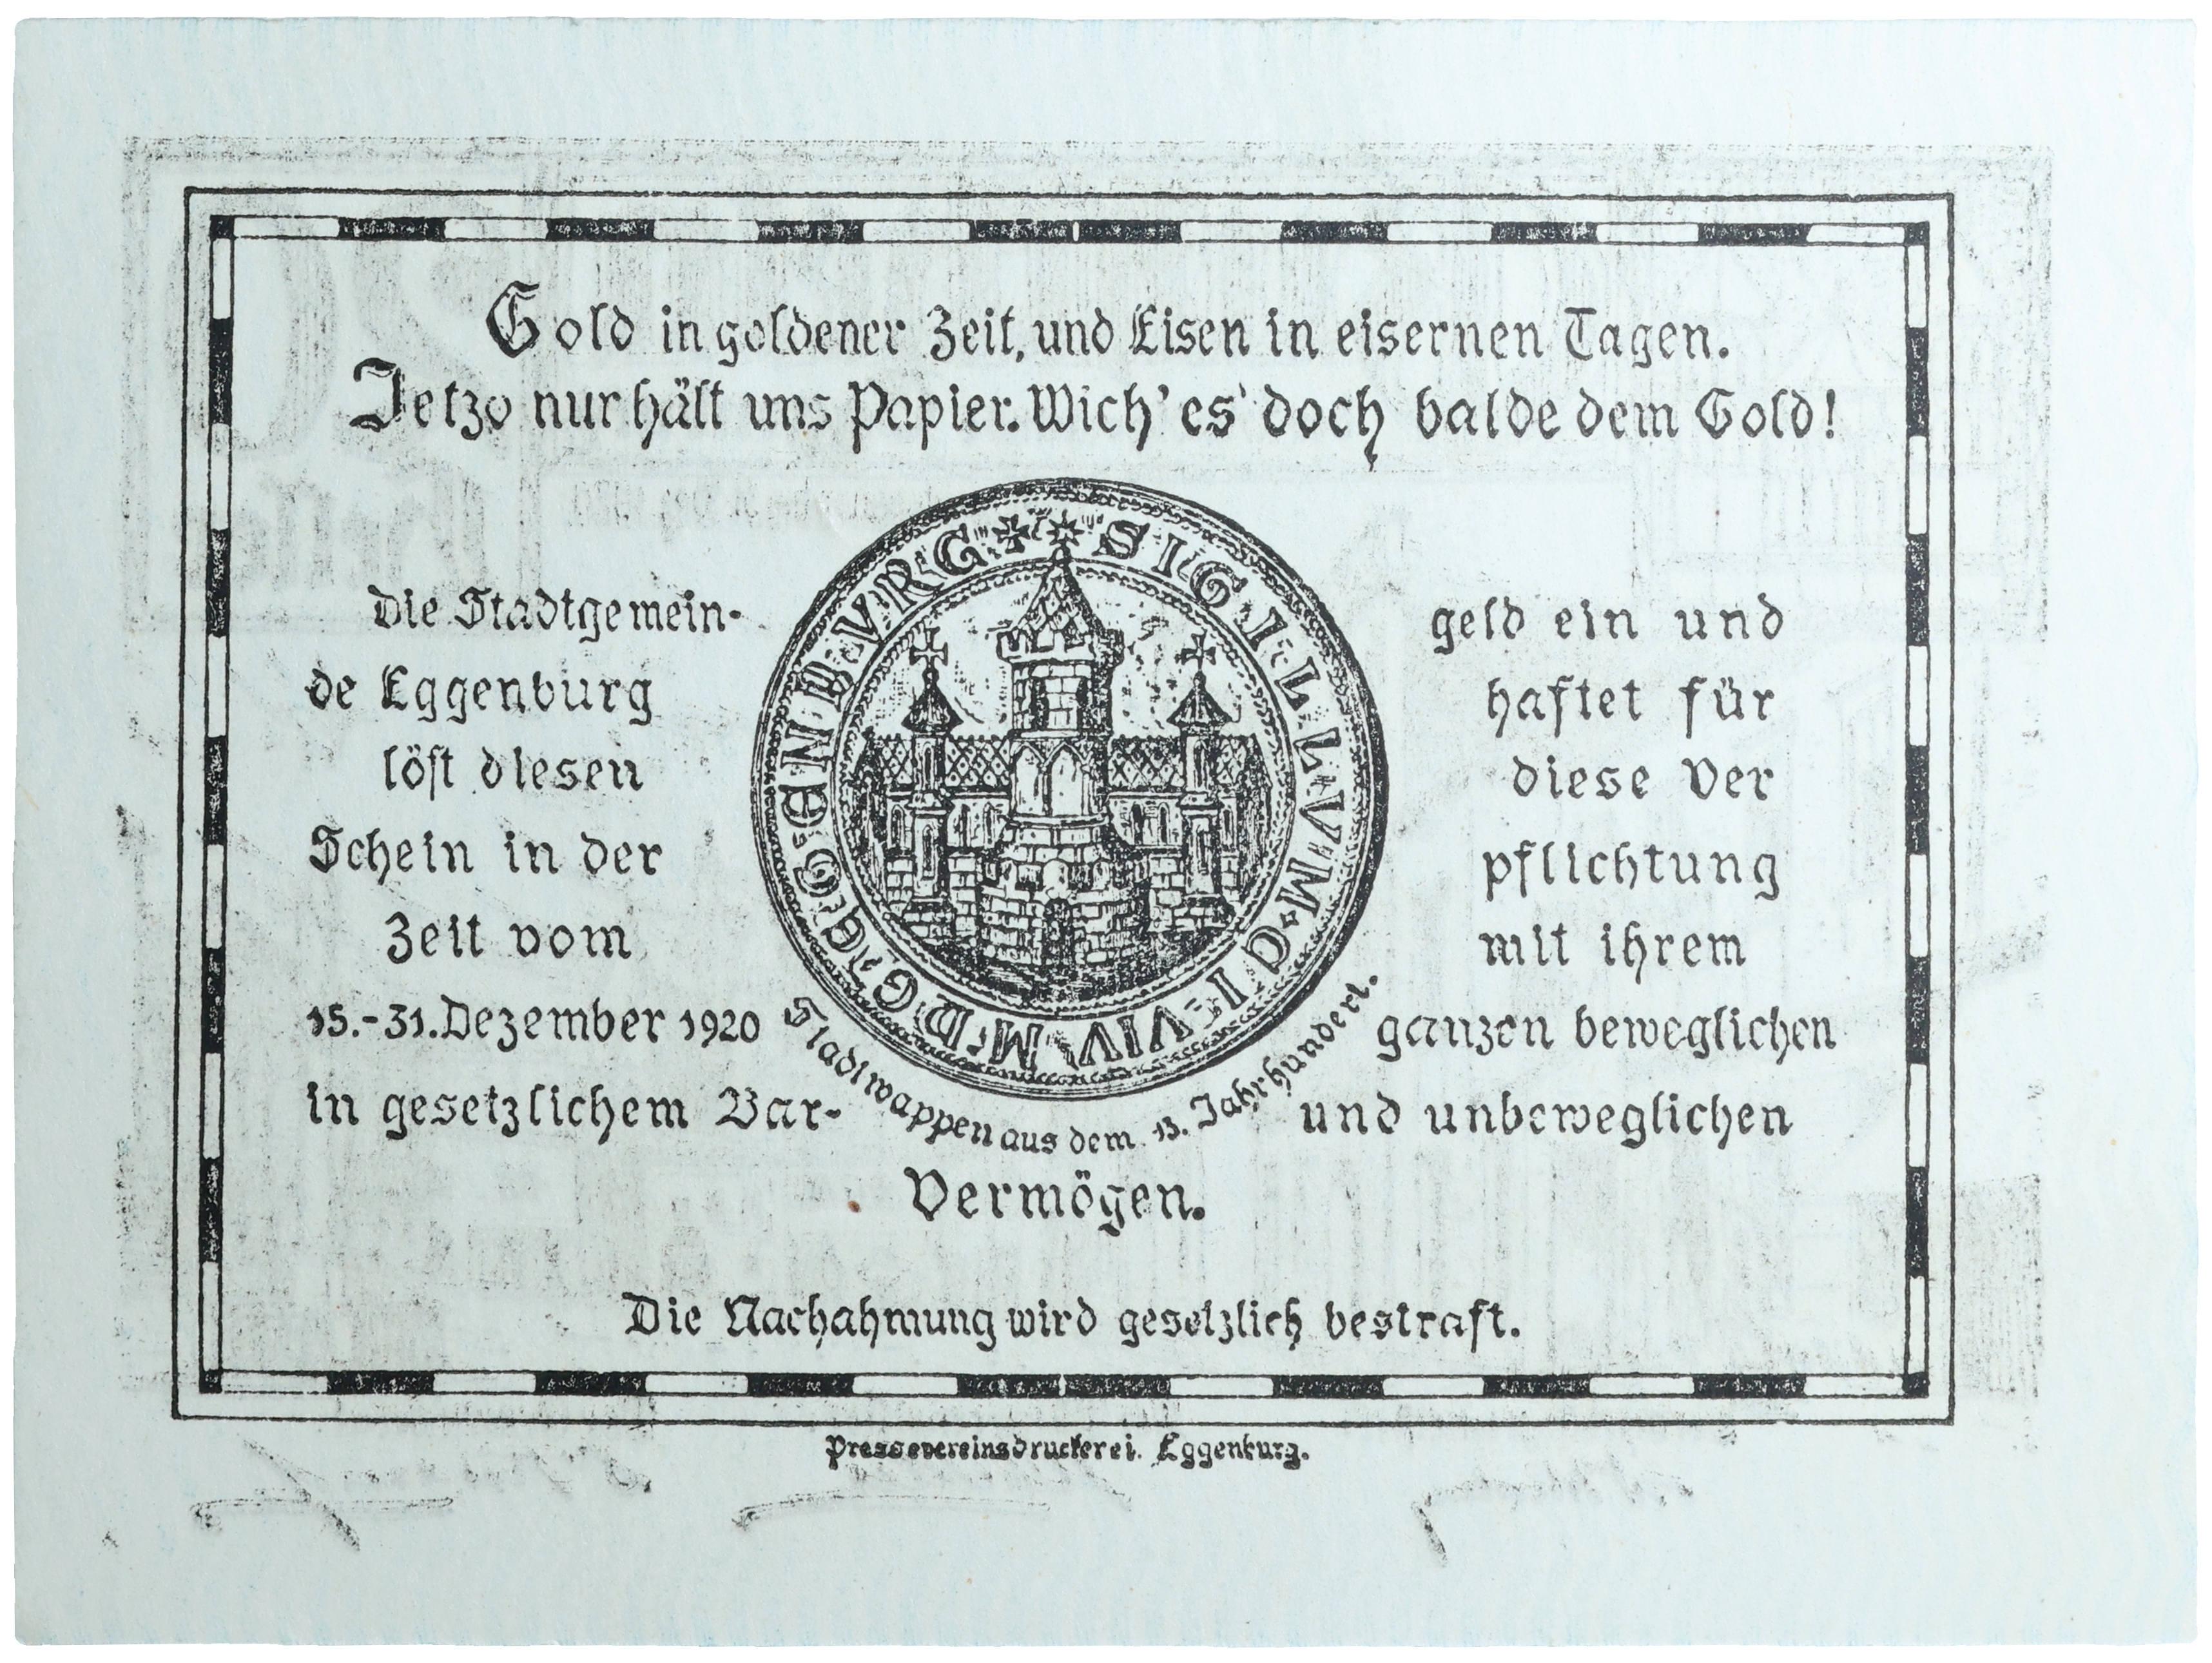 Gold in goldener Zeit, und Eisen in eisernen Tagen.
Jetzo nur hält uns Papier. Wich' es doch balde dem Gold!
SIGILLVM CIVIVM DE EGGENBVRG
Die Stadtgemein-
de Eggenburg
löst diesen
Schein in der
Zeit vom
15.-31. Dezember 1920
in gesetzlichem Bar-
geld ein und
haftet für
diese Ver
pflichtung
mit ihrem
ganzen beweglichen
und unbeweglichen
Vermögen.
Stadtwappen aus dem 13. Jahrhundert.
Die Nachahmung wird gesetzlich bestraft.
Pressevereinsdruckerei Eggenburg.